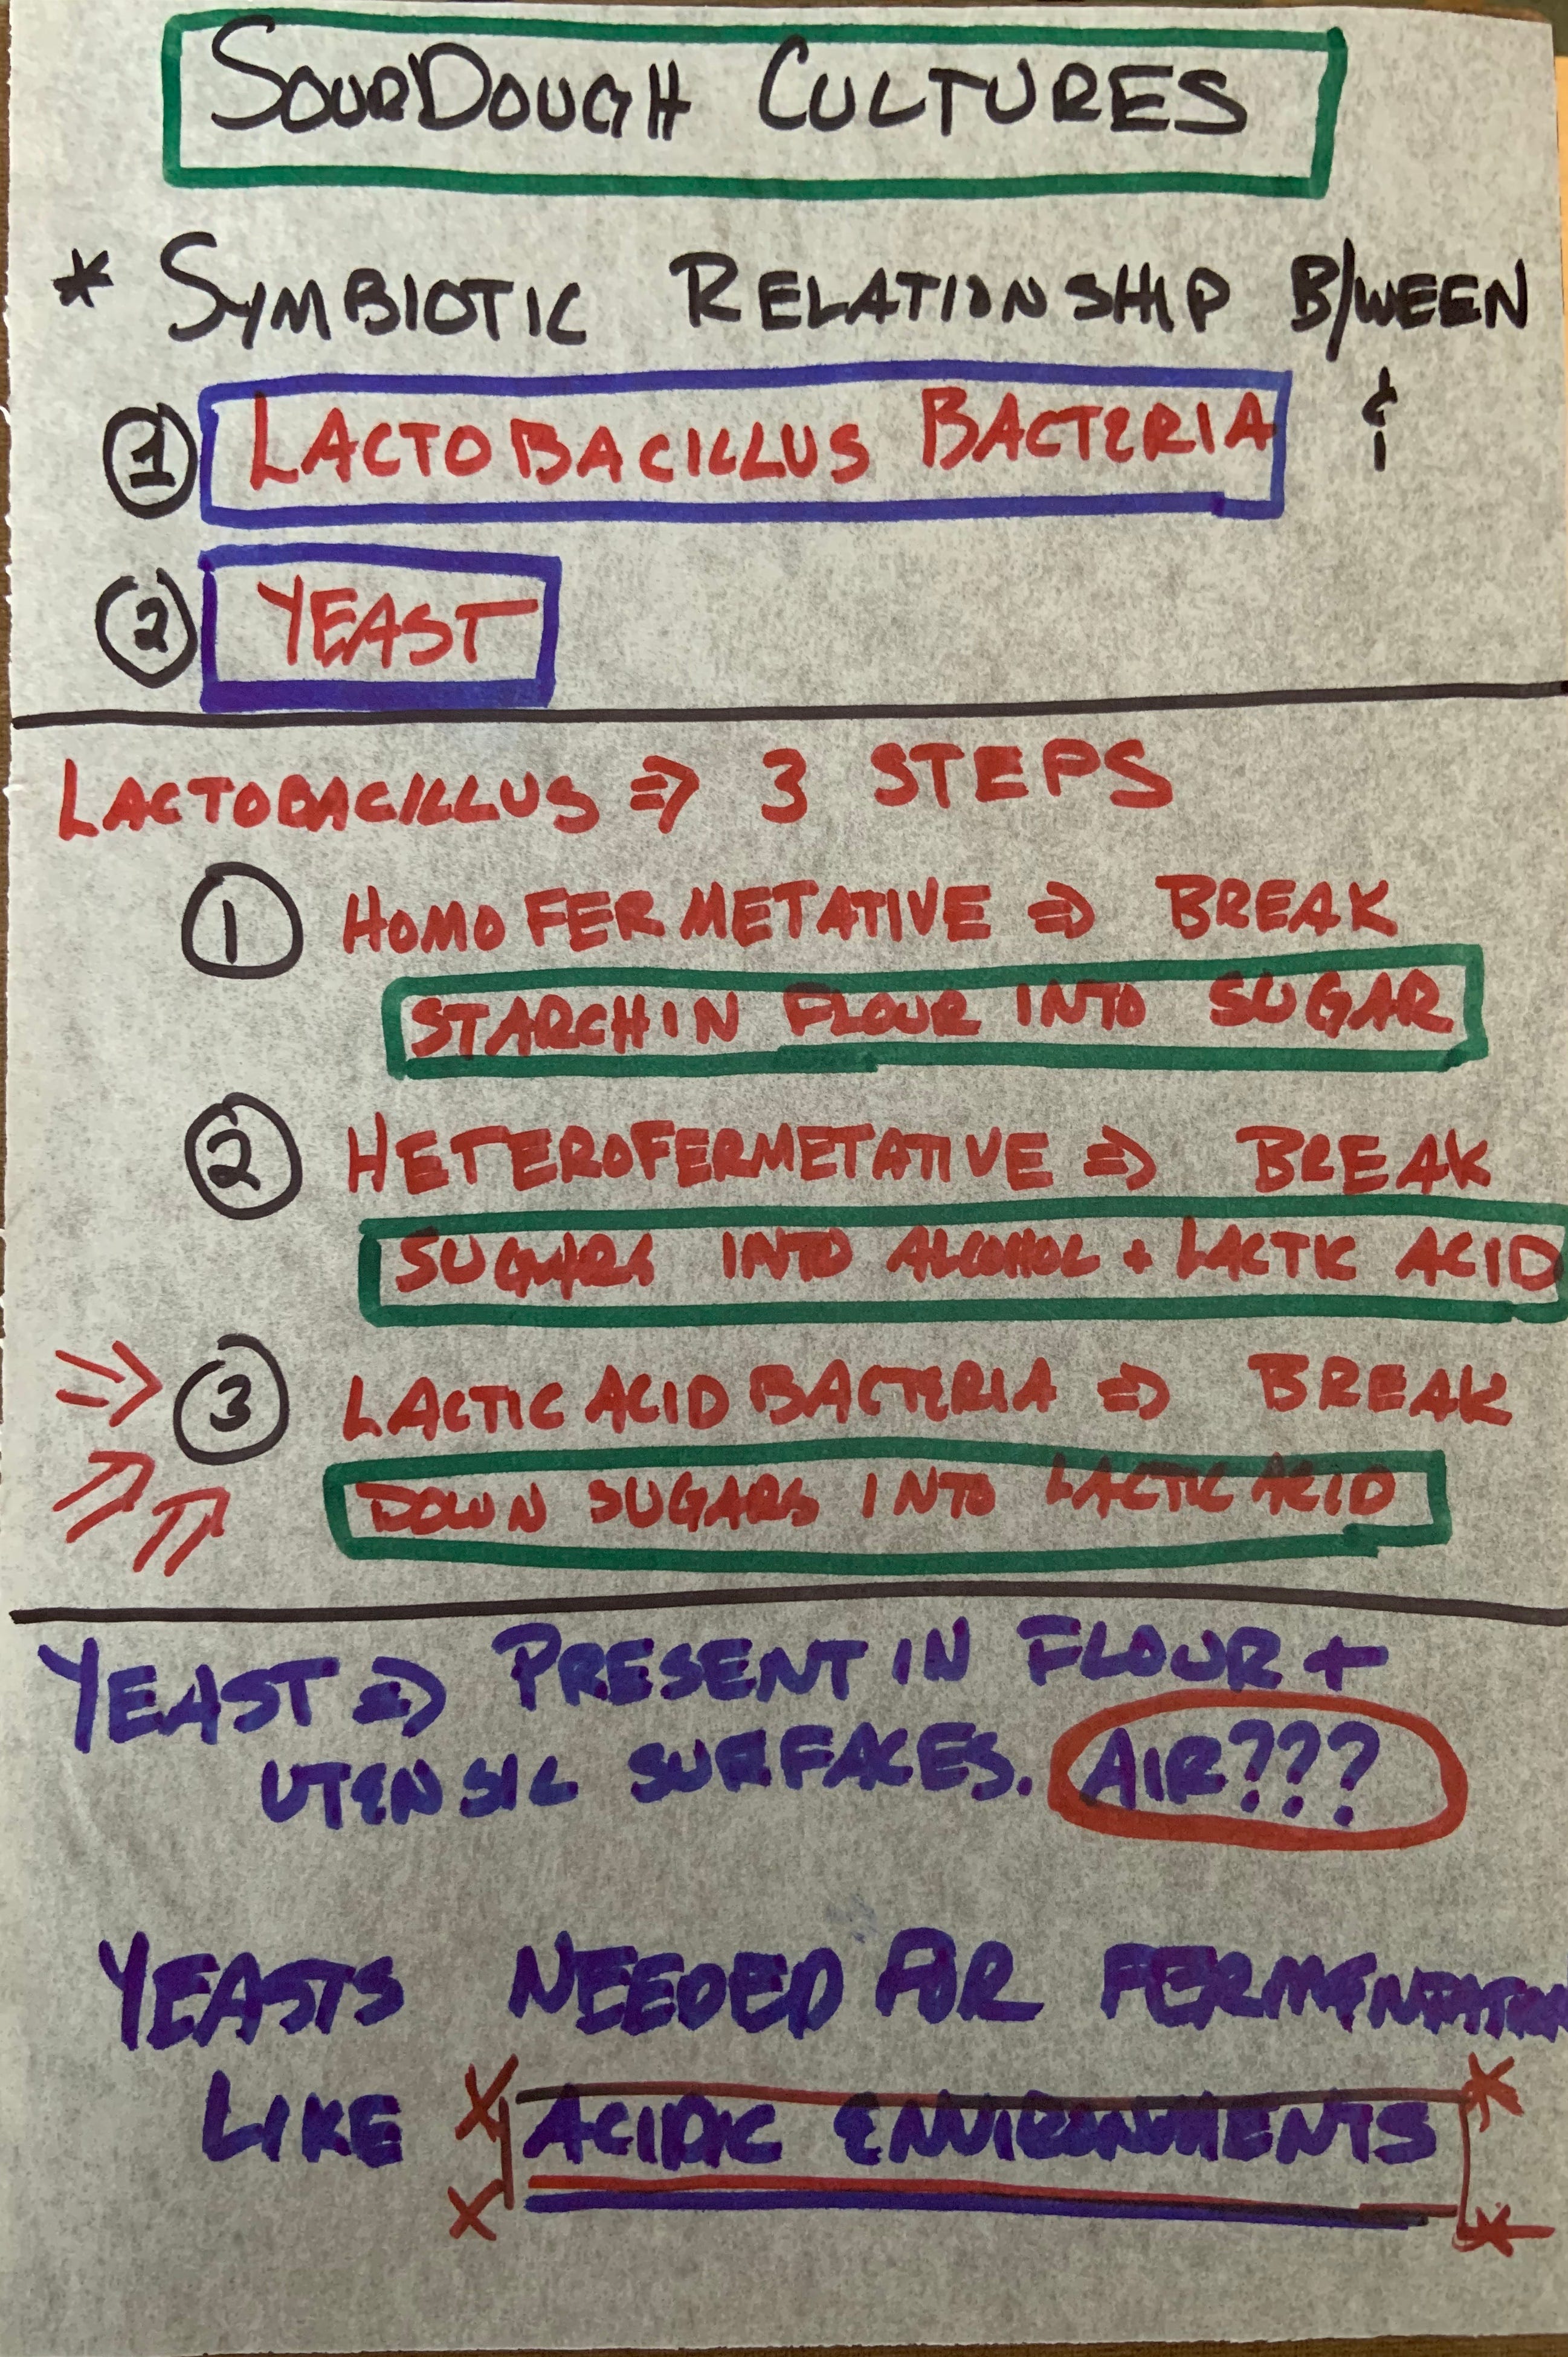 SOURDOUGH CULTURES
* SYMBIOTIC RELATIONSHIP B/WEEN
① LACTOBACILLUS BACTERIA &
② YEAST
LACTOBACILLUS ⇒ 3 STEPS
① HOMOFERMETATIVE ⇒ BREAK
STARCH IN FLOUR INTO SUGAR
② HETEROFERMETATIVE ⇒ BREAK
SUGARS INTO ALCOHOL + LACTIC ACID
⇒ ③ LACTIC ACID BACTERIA ⇒ BREAK
DOWN SUGARS INTO LACTIC ACID
YEAST ⇒ PRESENT IN FLOUR +
UTENSIL SURFACES. AIR???
YEASTS NEEDED FOR FERMENTATION
LIKE ACIDIC ENVIRONMENTS